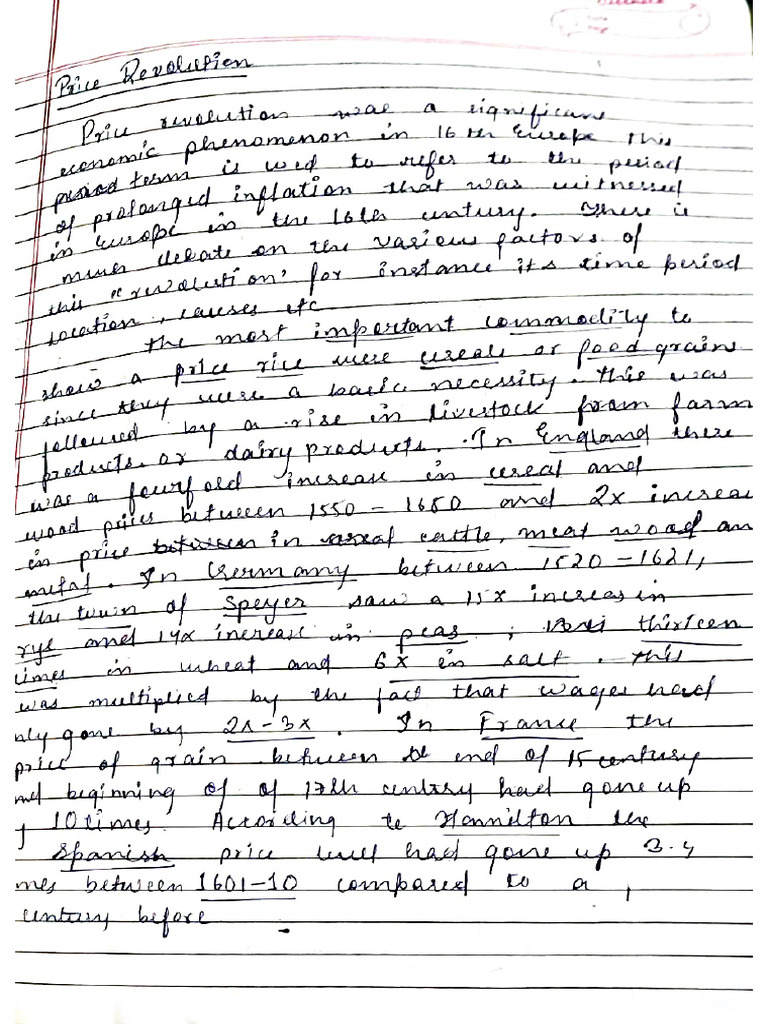 Price Revolution
Price revolution was a significant
economic phenomenon in 16th Europe This
term is used to refer to the period
of prolonged inflation that was witnessed
in Europe in the 16th century. There is
much debate on the various factors of
this "revolution" for instance its time period
location, causes etc
The most important commodity to
show a price rice were cereals or food grains
since they were a basic necessity. This was
followed by a rise in livestock from farm
products or dairy products. In England there
was a fourfold increase in cereal and
wood prices between 1550 - 1650 and 2x increas
in price in cattle, meat wood an
metal. In Germany between 1520 - 1621,
the town of Speyer saw a 15x increas in
rye and 14x increase in peas, thirteen
times in wheat and 6x in salt. This
was multiplied by the fact that wages had
nly gone by 2x - 3x. In France the
price of grain between end of 15 century
and beginning of of 17th century had gone up
10 times. According to Hamilton the
Spanish price level had gone up 3.4
mes between 1601-10 compared to a
century before